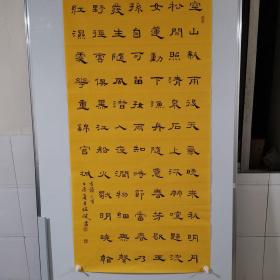 空山新雨後天氣晚來秋明月
松間照清泉石上流竹喧歸浣
女蓮動下漁舟隨意春芳歇王
孫自可留好雨知時節當春乃
發生隨風潛入夜潤物細無聲
野徑雲俱黑江船火獨明曉看
紅濕處花重錦官城